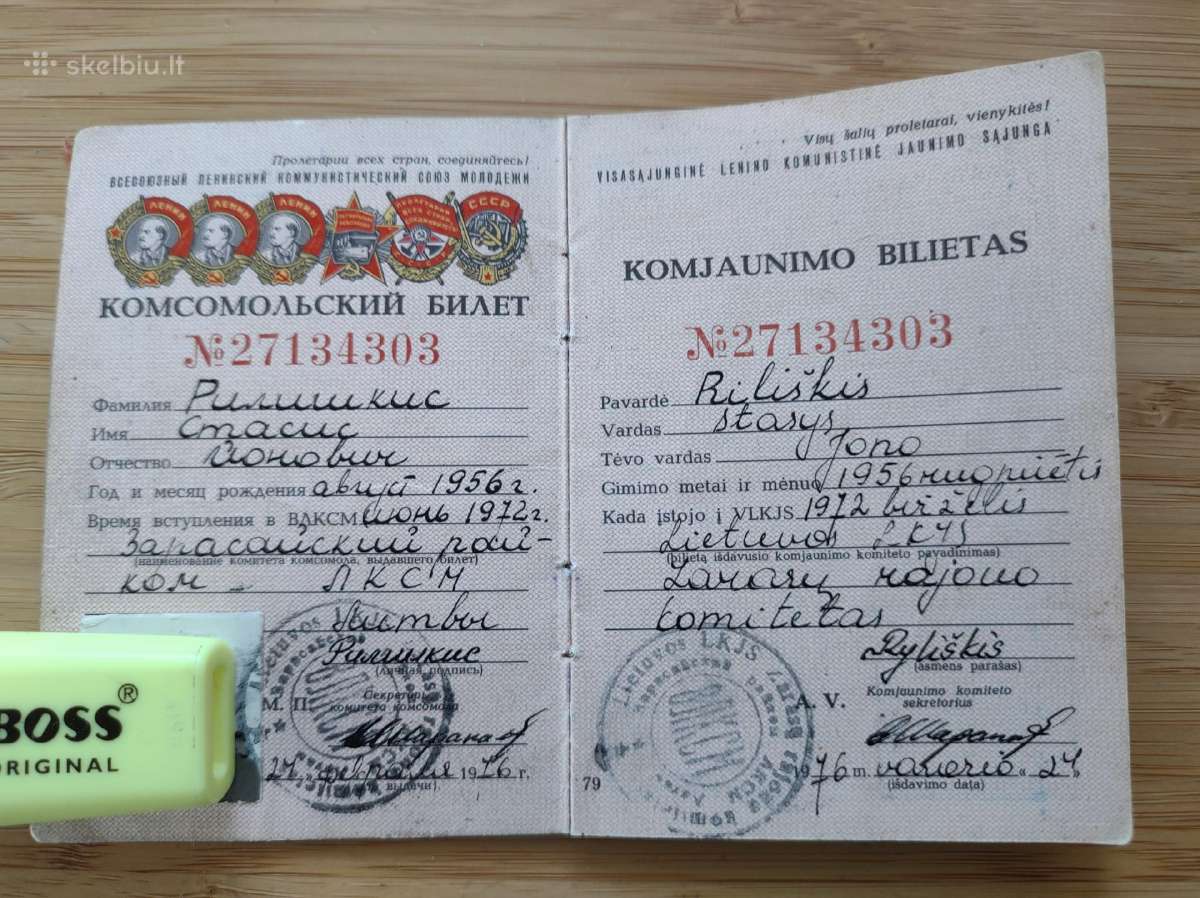 skelbiu.lt
Пролетарии всех стран, соединяйтесь!
ВСЕСОЮЗНЫЙ ЛЕНИНСКИЙ КОММУНИСТИЧЕСКИЙ СОЮЗ МОЛОДЕЖИ
ЛЕНИН ЛЕНИН ЛЕНИН
ПРОЛЕТАРИИ ВСЕХ СТРАН СОЕДИНЯЙТЕСЬ
СССР
КОМСОМОЛЬСКИЙ БИЛЕТ
№27134303
Фамилия Рилишкис
Имя Стасис
Отчество Ионович
Год и месяц рождения август 1956 г.
Время вступления в ВЛКСМ июнь 1972 г.
Зарасайский рай-
(наименование комитета комсомола, выдавшего билет)
ком - ЛКСМ
Литвы
Рилишкис
(личная подпись)
М. П.
Секретарь
комитета комсомола
27 февраля 1976 г.
выдачи)
BOSS®
ORIGINAL
Visų šalių proletarai, vienykitės!
VISASĄJUNGINĖ LENINO KOMUNISTINĖ JAUNIMO SĄJUNGA
KOMJAUNIMO BILIETAS
№27134303
Pavardė Riliškis
Vardas Stasys
Tėvo vardas Jono
Gimimo metai ir mėnuo 1956 rugpiūtis
Kada įstojo į VLKJS 1972 birželis
Lietuvos LKJS
(bilietą išdavusio komjaunimo komiteto pavadinimas)
Zarasų rajono
komitetas
Ryliškis
(asmens parašas)
A. V.
Komjaunimo komiteto
sekretorius
1976 m. vasario „27"
(išdavimo data)
79
Lietuvos LKJS